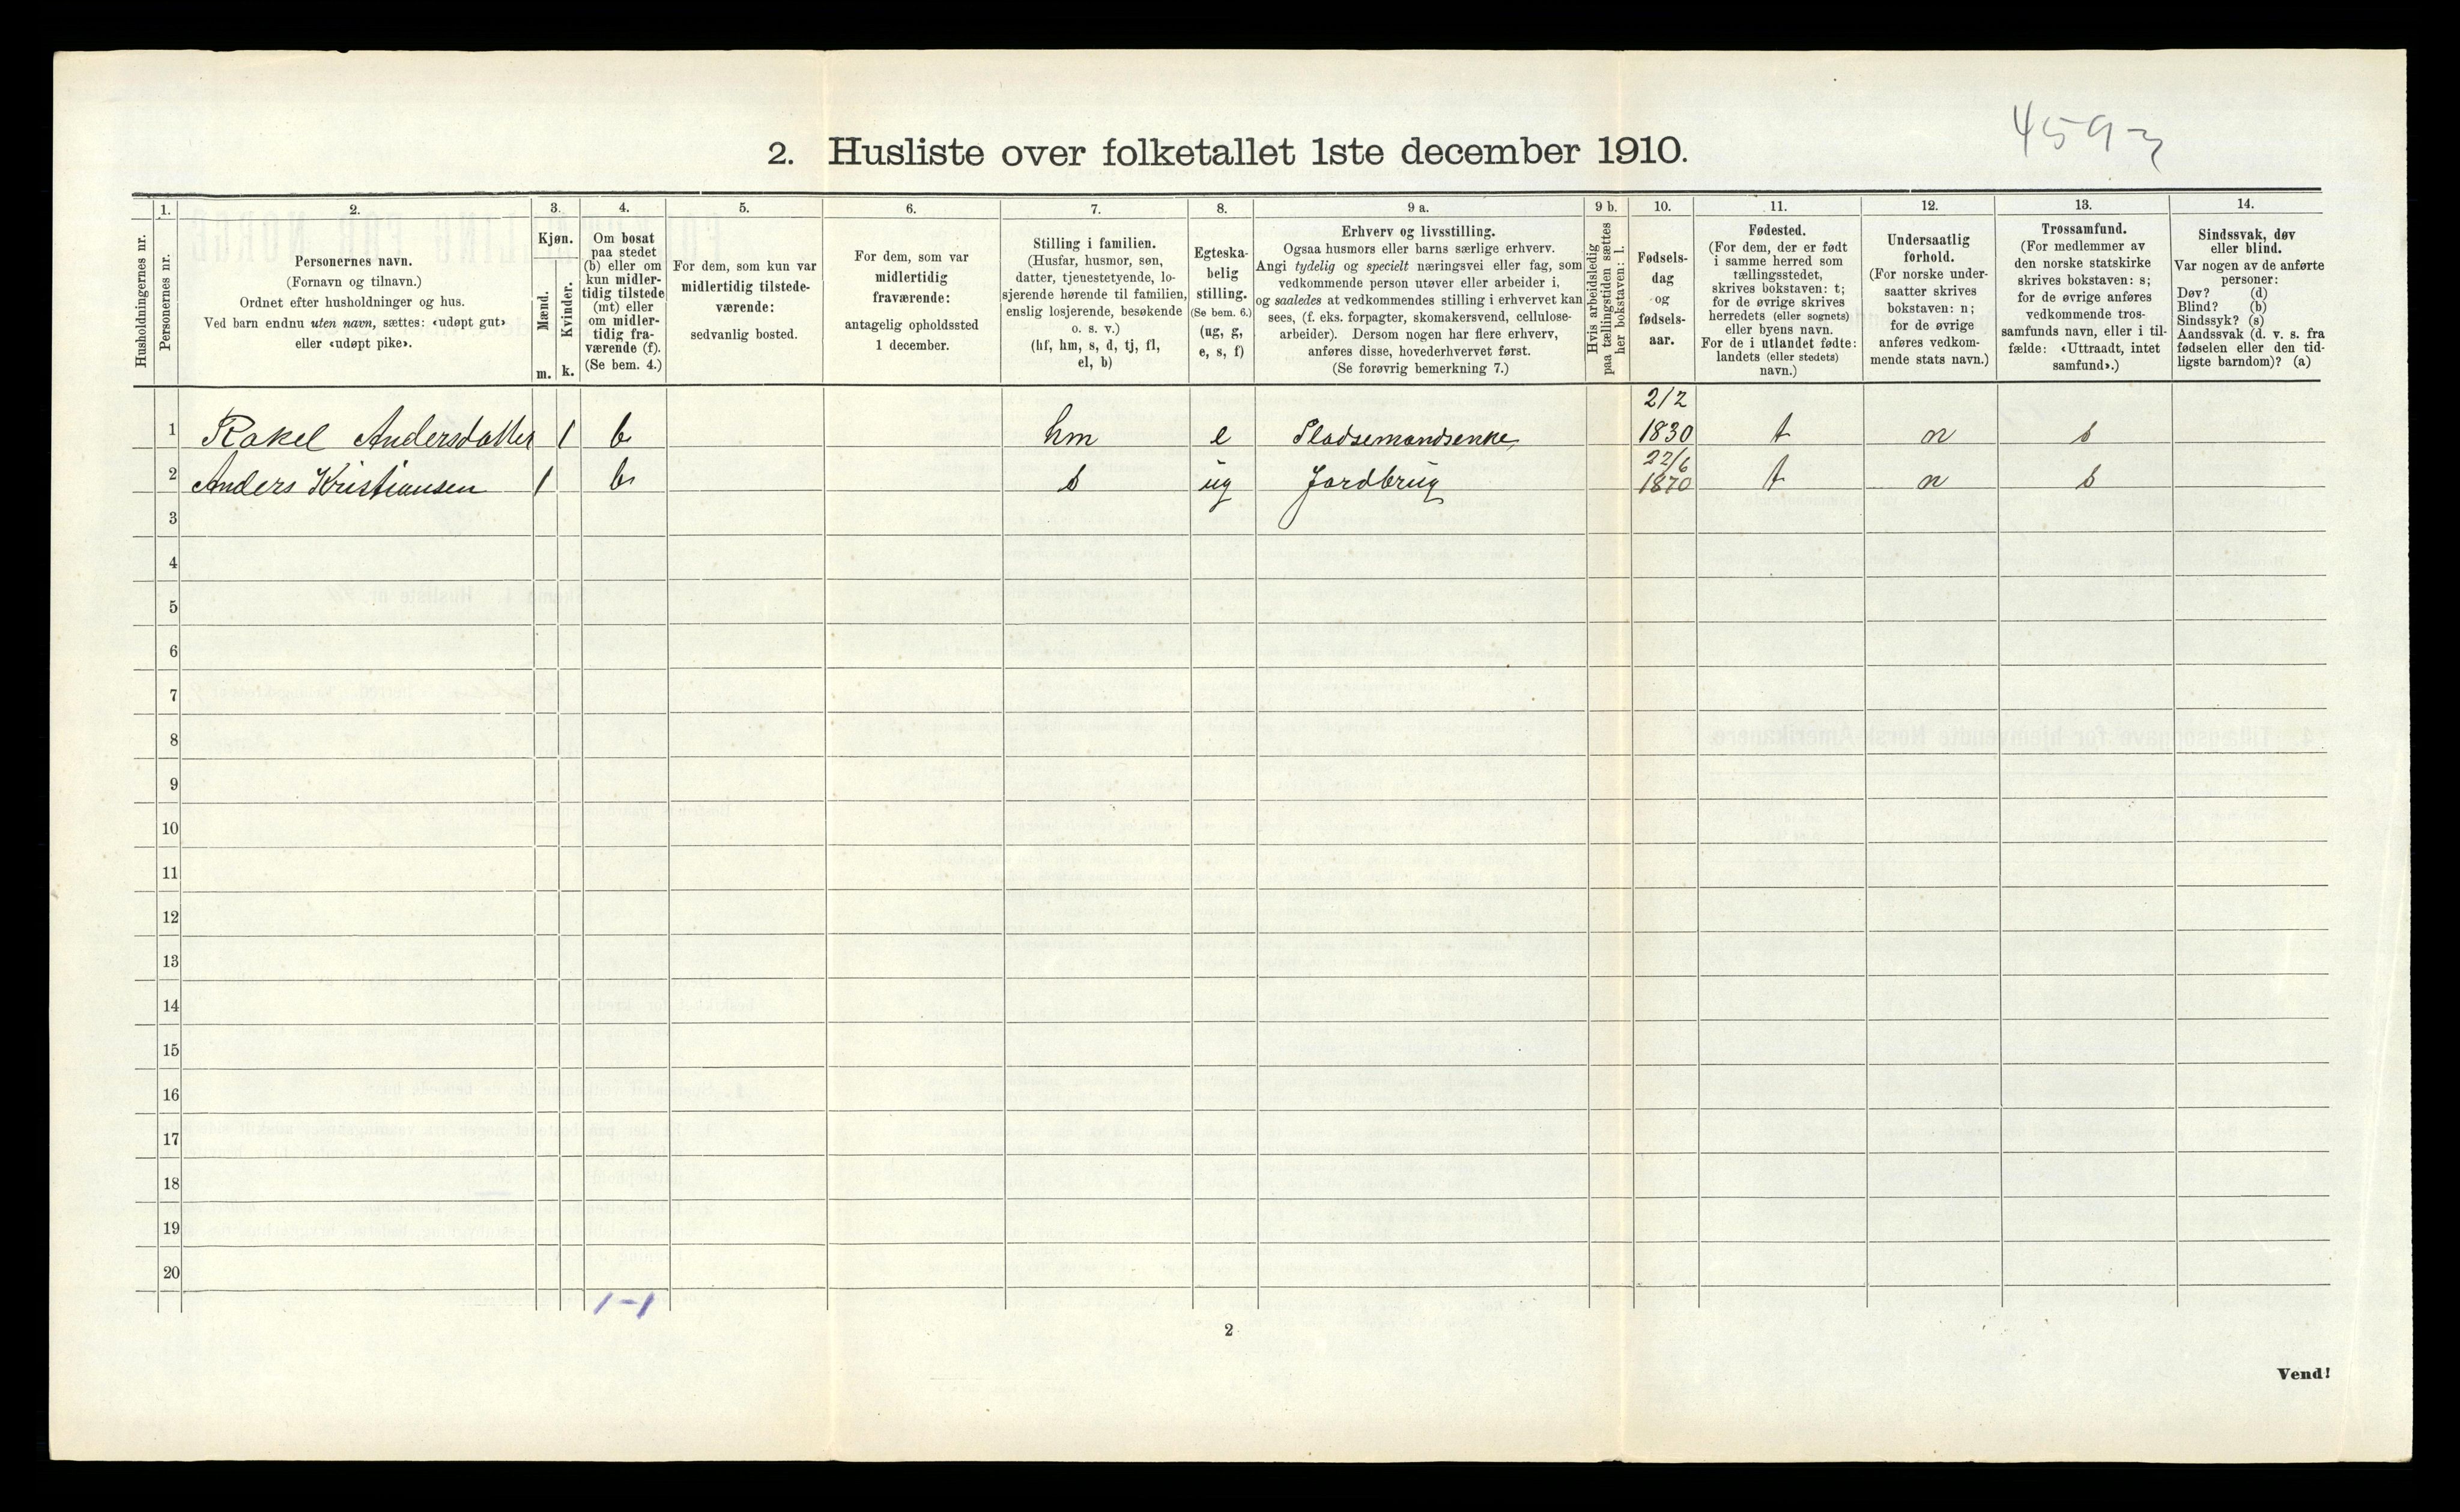 4593
2. Husliste over folketallet 1ste december 1910.
Husholdningernes nr.
1.
Personernes nr.
2.
Personernes navn.
(Fornavn og tilnavn.)
Ordnet efter husholdninger og hus.
Ved barn endnu uten navn, sættes: «udøpt gut»
eller «udøpt pike».
3.
Kjøn.
Mænd.
Kvinder.
m.
k.
4.
Om bosat
paa stedet
(b) eller om
kun midler-
tidig tilstede
(mt) eller
om midler-
tidig fra-
værende (f).
(Se bem. 4.)
5.
For dem, som kun var
midlertidig tilstede-
værende:
sedvanlig bosted.
6.
For dem, som var
midlertidig
fraværende:
antagelig opholdssted
1 december.
7.
Stilling i familien.
(Husfar, husmor, søn,
datter, tjenestetyende, lo-
sjerende hørende til familien,
enslig losjerende, besøkende
o. s. v.)
(hf, hm, s, d, tj, fl,
el, b)
8.
Egteska-
belig
stilling.
(Se bem. 6.)
(ug, g,
e, s, f)
9 a.
Erhverv og livsstilling.
Ogsaa husmors eller barns særlige erhverv.
Angi tydelig og specielt næringsvei eller fag, som
vedkommende person utøver eller arbeider i,
og saaledes at vedkommendes stilling i erhvervet kan
sees, (f. eks. forpagter, skomakersvend, cellulose-
arbeider). Dersom nogen har flere erhverv,
anføres disse, hovederhvervet først.
(Se forøvrig bemerkning 7.)
9 b.
Hvis arbeidsledig
paa tællingstiden sættes
her bokstaven: l.
10.
Fødsels-
dag
og
fødsels-
aar.
11.
Fødested.
(For dem, der er født
i samme herred som
tællingsstedet,
skrives bokstaven: t;
for de øvrige skrives
herredets (eller sognets)
eller byens navn.
For de i utlandet fødte:
landets (eller stedets)
navn.)
12.
Undersaatlig
forhold.
(For norske under-
saatter skrives
bokstaven: n;
for de øvrige
anføres vedkom-
mende stats navn.)
13.
Trossamfund.
(For medlemmer av
den norske statskirke
skrives bokstaven: s;
for de øvrige anføres
vedkommende tros-
samfunds navn, eller i til-
fælde: «Uttraadt, intet
samfund».)
14.
Sindssvak, døv
eller blind.
Var nogen av de anførte
personer:
Døv? (d)
Blind? (b)
Sindssyk? (s)
Aandssvak (d. v. s. fra
fødselen eller den tid-
ligste barndom)? (a)
1 Rakel Andersdatter 1 b hm e Pladsemandsenke 2/2 1830 t n s
2 Anders Kristiansen 1 b s ug Jordbrug 22/6 1870 t n s
3
4
5
6
7
8
9
10
11
12
13
14
15
16
17
18
19
20
1-1
2
Vend!